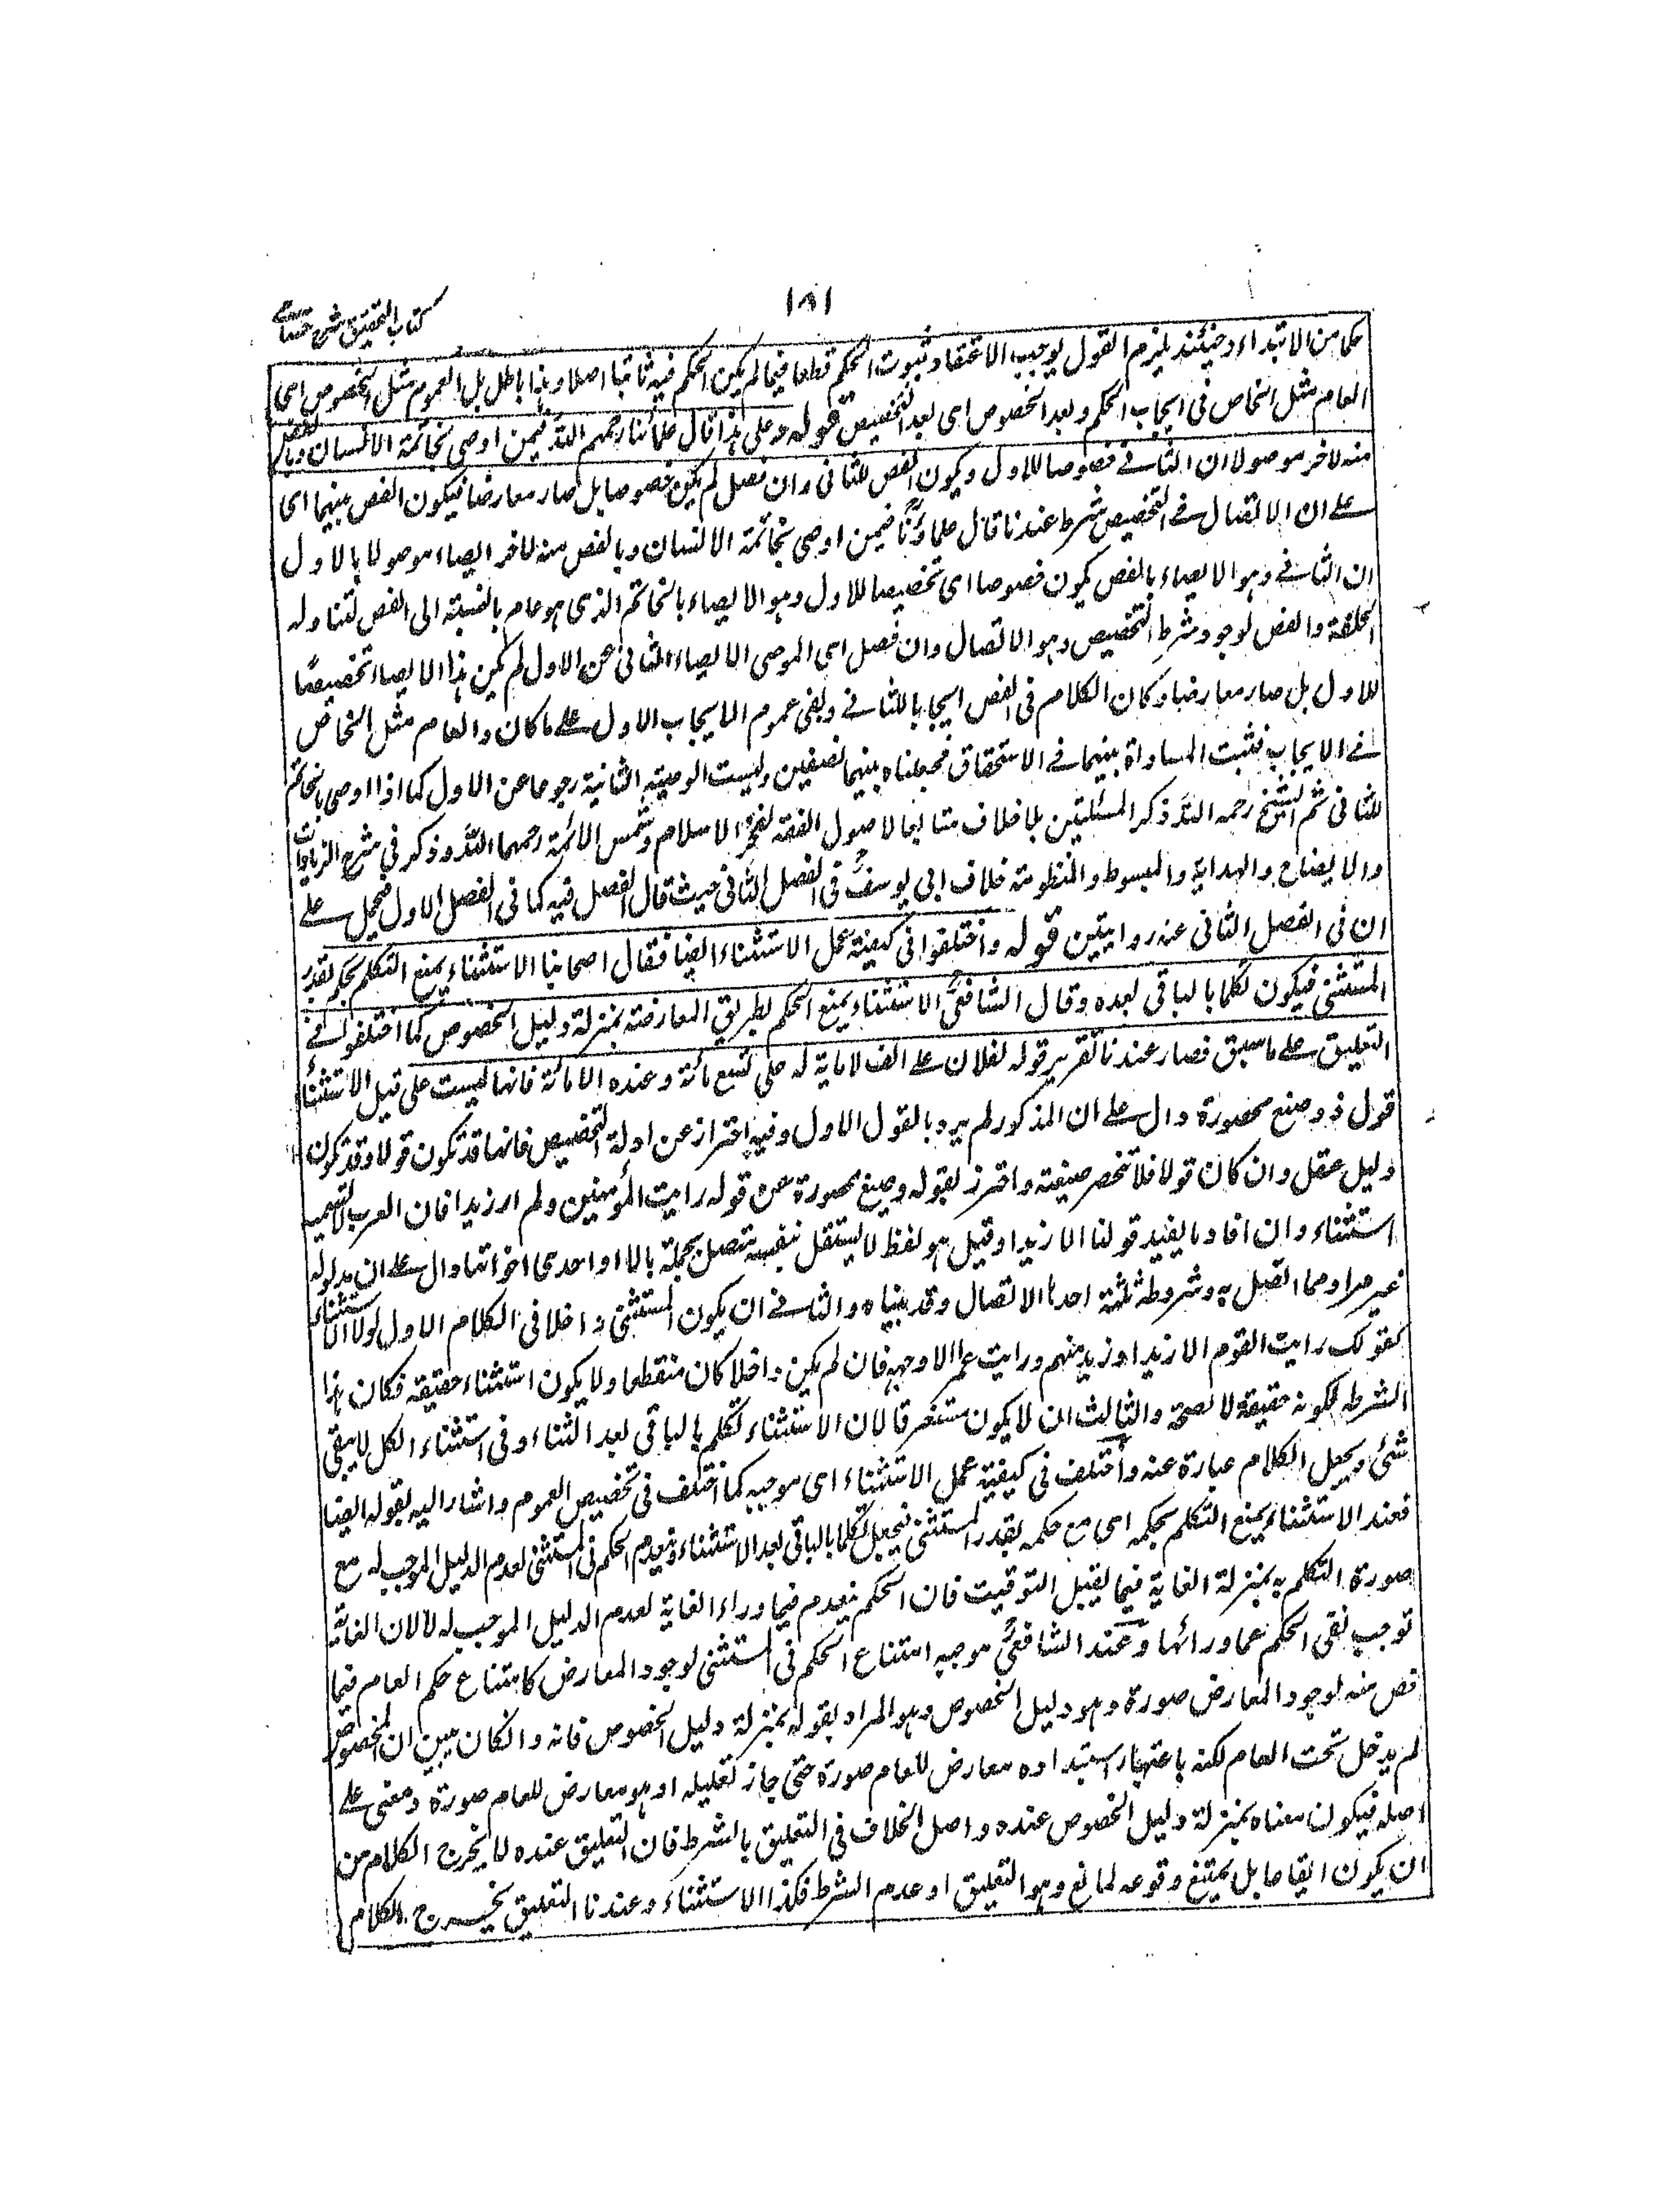 ١٨١
كتاب التحقيق شرح حسامى
حكما من الابتداء وحينئذ يلزم القول بوجوب الاعتقاد وثبوت الحكم قطعا فيما لم يكن الحكم فيه ثابتا اصلا وهذا باطل بل العموم مثل الخصوص اى
العام مثل الخاص فى ايجاب الحكم وبعد الخصوص اى بعد التخصيص قوله وعلى هذا قال علمائنا رحمهم الله فيمن اوصى بخاتمه لانسان وبالفص
منه لاخر موصولا ان الثانى خصوصا للاول ويكون الفص للثانى وان فصل لم يكن خصوصا بل صار معارضا فيكون الفص بينهما اى
على ان الاتصال فى التخصيص شرط عندنا قال علماؤنا فيمن اوصى بخاتمه لانسان وبالفص منه لاخر ايصاء موصولا بالاول
ان الثانى وهو الايصاء بالفص يكون خصوصا اى تخصيصا للاول وهو الايصاء بالخاتم الذى هو عام بالنسبة الى الفص لتناوله
الحلقة والفص لوجود شرط التخصيص وهو الاتصال وان فصل اى الموصى الايصاء الثانى عن الاول لم يكن هذا الايصاء تخصيصًا
للاول بل صار معارضا وكان الكلام فى الفص ايجابا للثانى وبقى عموم الايجاب الاول على ما كان والعام مثل الخاص
فى الايجاب فثبت المساواة بينهما فى الاستحقاق فجعلناه بينهما نصفين وليست الوصية الثانية رجوعا عن الاول كما اذا اوصى بالخاتم
للثانى ثم الشيخ رحمه الله ذكر المسئلتين بلا خلاف متابعا لاصول الفقه لفخر الاسلام وشمس الائمة رحمهما الله وذكر فى شرح الزيادات
والايضاح والهداية والمبسوط والمنظومة خلاف ابى يوسفؒ فى الفصل الثانى حيث قال الفصل فيه كما فى الفصل الاول فيحمل على
ان فى الفصل الثانى عنه روايتين قوله واختلفوا فى كيفية عمل الاستثناء ايضا فقال اصحابنا الاستثناء يمنع التكلم بحكمه بقدر
المستثنى فيكون تكلما بالباقى بعده وقال الشافعىؒ الاستثناء يمنع الحكم بطريق المعارضة بمنزلة دليل الخصوص كما اختلفوا فى
التعليق على ما سبق فصار عندنا تقرير قوله لفلان على الف الا ماية له على تسع مائة وعنده الا مائة فانها ليست على قيل الاستثناء
قول ذو صيغ محصورة دال على ان المذكور لم يرد بالقول الاول وفيه احتراز عن ادلة التخصيص فانها قد تكون قولا وقد تكون
دليل عقل وان كان قولا فلا تنحصر صيغته واحترز بقوله وصيغ محصورة عن قوله رايت المؤمنين ولم ار زيدا فان العرب لا تسميه
استثناء وان افاد ما يفيد قولنا الا زيدا وقيل هو لفظ لا يستقل بنفسه متصل بجملة بالا او احدى اخواتها دال على ان مدلوله
غير مراد مما اتصل به وشروطه ثلثة احدها الاتصال وقد بيناه والثانى ان يكون المستثنى داخلا فى الكلام الاول لولا الاستثناء
كقولك رايت القوم الا زيدا وزيد منهم ورايت عمرا الا وجهه فان لم يكن داخلا كان منقطعا ولا يكون استثناء حقيقة فكان هذا
الشرط لكونه حقيقة لا لصحة والثالث ان لا يكون مستغرقا لان الاستثناء تكلم بالباقى بعد الثناء وفى استثناء الكل لا يبقى
شئ ويجعل الكلام عبارة عنه واختلف فى كيفية عمل الاستثناء اى موجبه كما اختلف فى تخصيص العموم واشار اليه بقوله ايضا
فعند الاستثناء يمنع التكلم بحكمه اى مع حكمه بقدر المستثنى فيجعل تكلما بالباقى بعد الاستثناء وينعدم الحكم فى المستثنى لعدم الدليل الموجب له مع
صورة التكلم به بمنزلة الغاية فيما يقبل التوقيت فان الحكم ينعدم فيما وراء الغاية لعدم الدليل الموجب له لا لان الغاية
توجب نفى الحكم عما ورائها وعند الشافعىؒ موجبه امتناع الحكم فى المستثنى لوجود المعارض كامتناع حكم العام فيما
خص منه لوجود المعارض صورة وهو دليل الخصوص وهو المراد بقوله بمنزلة دليل الخصوص فانه وانكان يبين ان المخصوص
لم يدخل تحت العام لكنه باعتبار استبداده معارض للعام صورة حتى جاز تعليله او هو معارض للعام صورة ومعنى على
اصله فيكون معناه بمنزلة دليل الخصوص عنده واصل الخلاف فى التعليق بالشرط فان التعليق عنده لا يخرج الكلام من
ان يكون ايقاعا بل يمتنع وقوعه لمانع وهو التعليق او عدم الشرط فكذا الاستثناء وعندنا التعليق يخرج الكلام